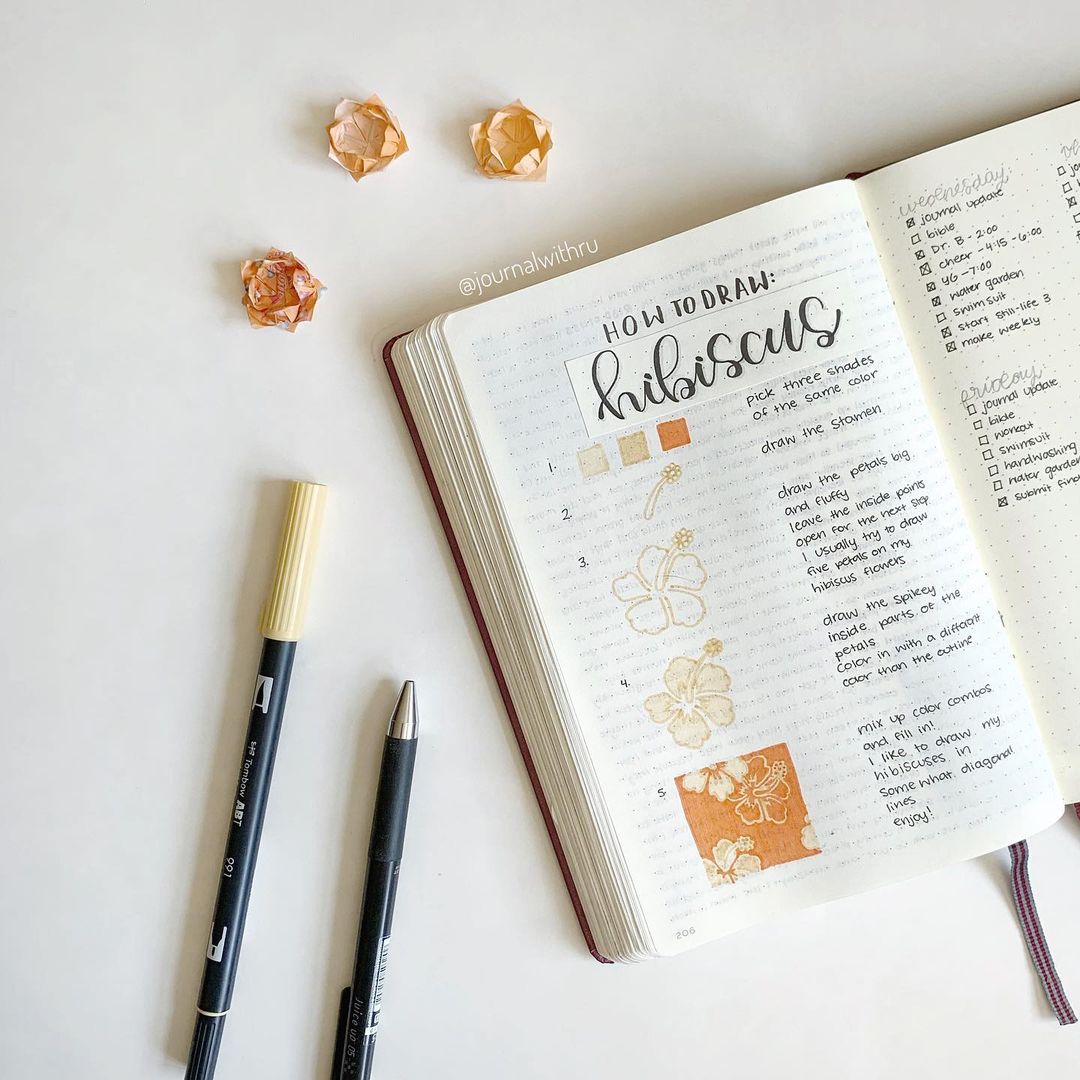 @journalwithru
HOW TO DRAW:
hibiscus
1.
pick three shades
of the same color
2.
draw the stamen
3.
draw the petals big
and fluffy
leave the inside points
open for the next step
I usually try to draw
five petals on my
hibiscus flowers
4.
draw the spikey
inside parts of the
petals
color in with a different
color than the outline
5.
mix up color combos
and fill in!
I like to draw my
hibiscuses in
somewhat diagonal
lines
enjoy!
206
wednesday
journal update
bible
Dr. B - 2:00
cheer - 4:15 - 6:00
YG - 7:00
water garden
swimsuit
start still-life 3
make weekly
friday
journal update
bible
workout
swimsuit
handwashing
water garden
submit
Tombow ABT
991
Juice up 05